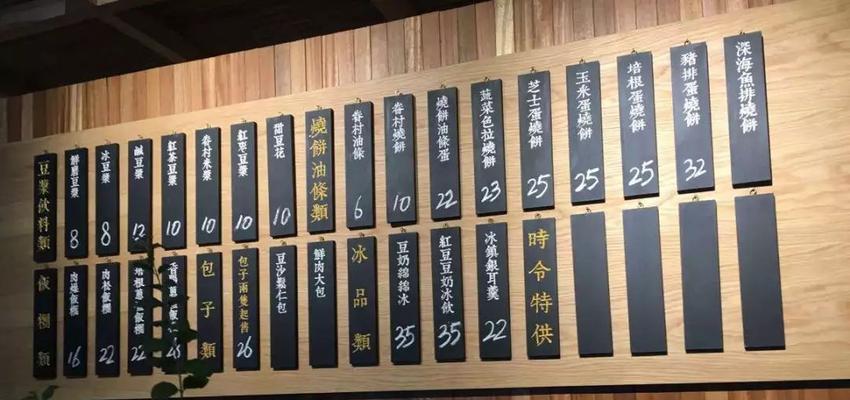 豆漿飲料類
鮮磨豆漿 8
冰豆漿 8
鹹豆漿 12
紅茶豆漿 10
眷村米漿 10
紅棗豆漿 10
甜豆花 10
燒餅油條類
眷村油條 6
眷村燒餅 10
燒餅油條蛋 22
蔬菜色拉燒餅 23
芝士蛋燒餅 25
玉米蛋燒餅 25
培根蛋燒餅 25
豬排蛋燒餅 32
深海魚排燒餅
飯糰類
肉燥飯糰 16
肉松飯糰 22
培根蔥飯糰 22
28
包子類
包子兩隻起售 26
豆沙鬆仁包
鮮肉大包
冰品類
豆奶綿綿冰 35
紅豆豆奶冰飲 35
冰鎮銀耳羹 22
時令特供